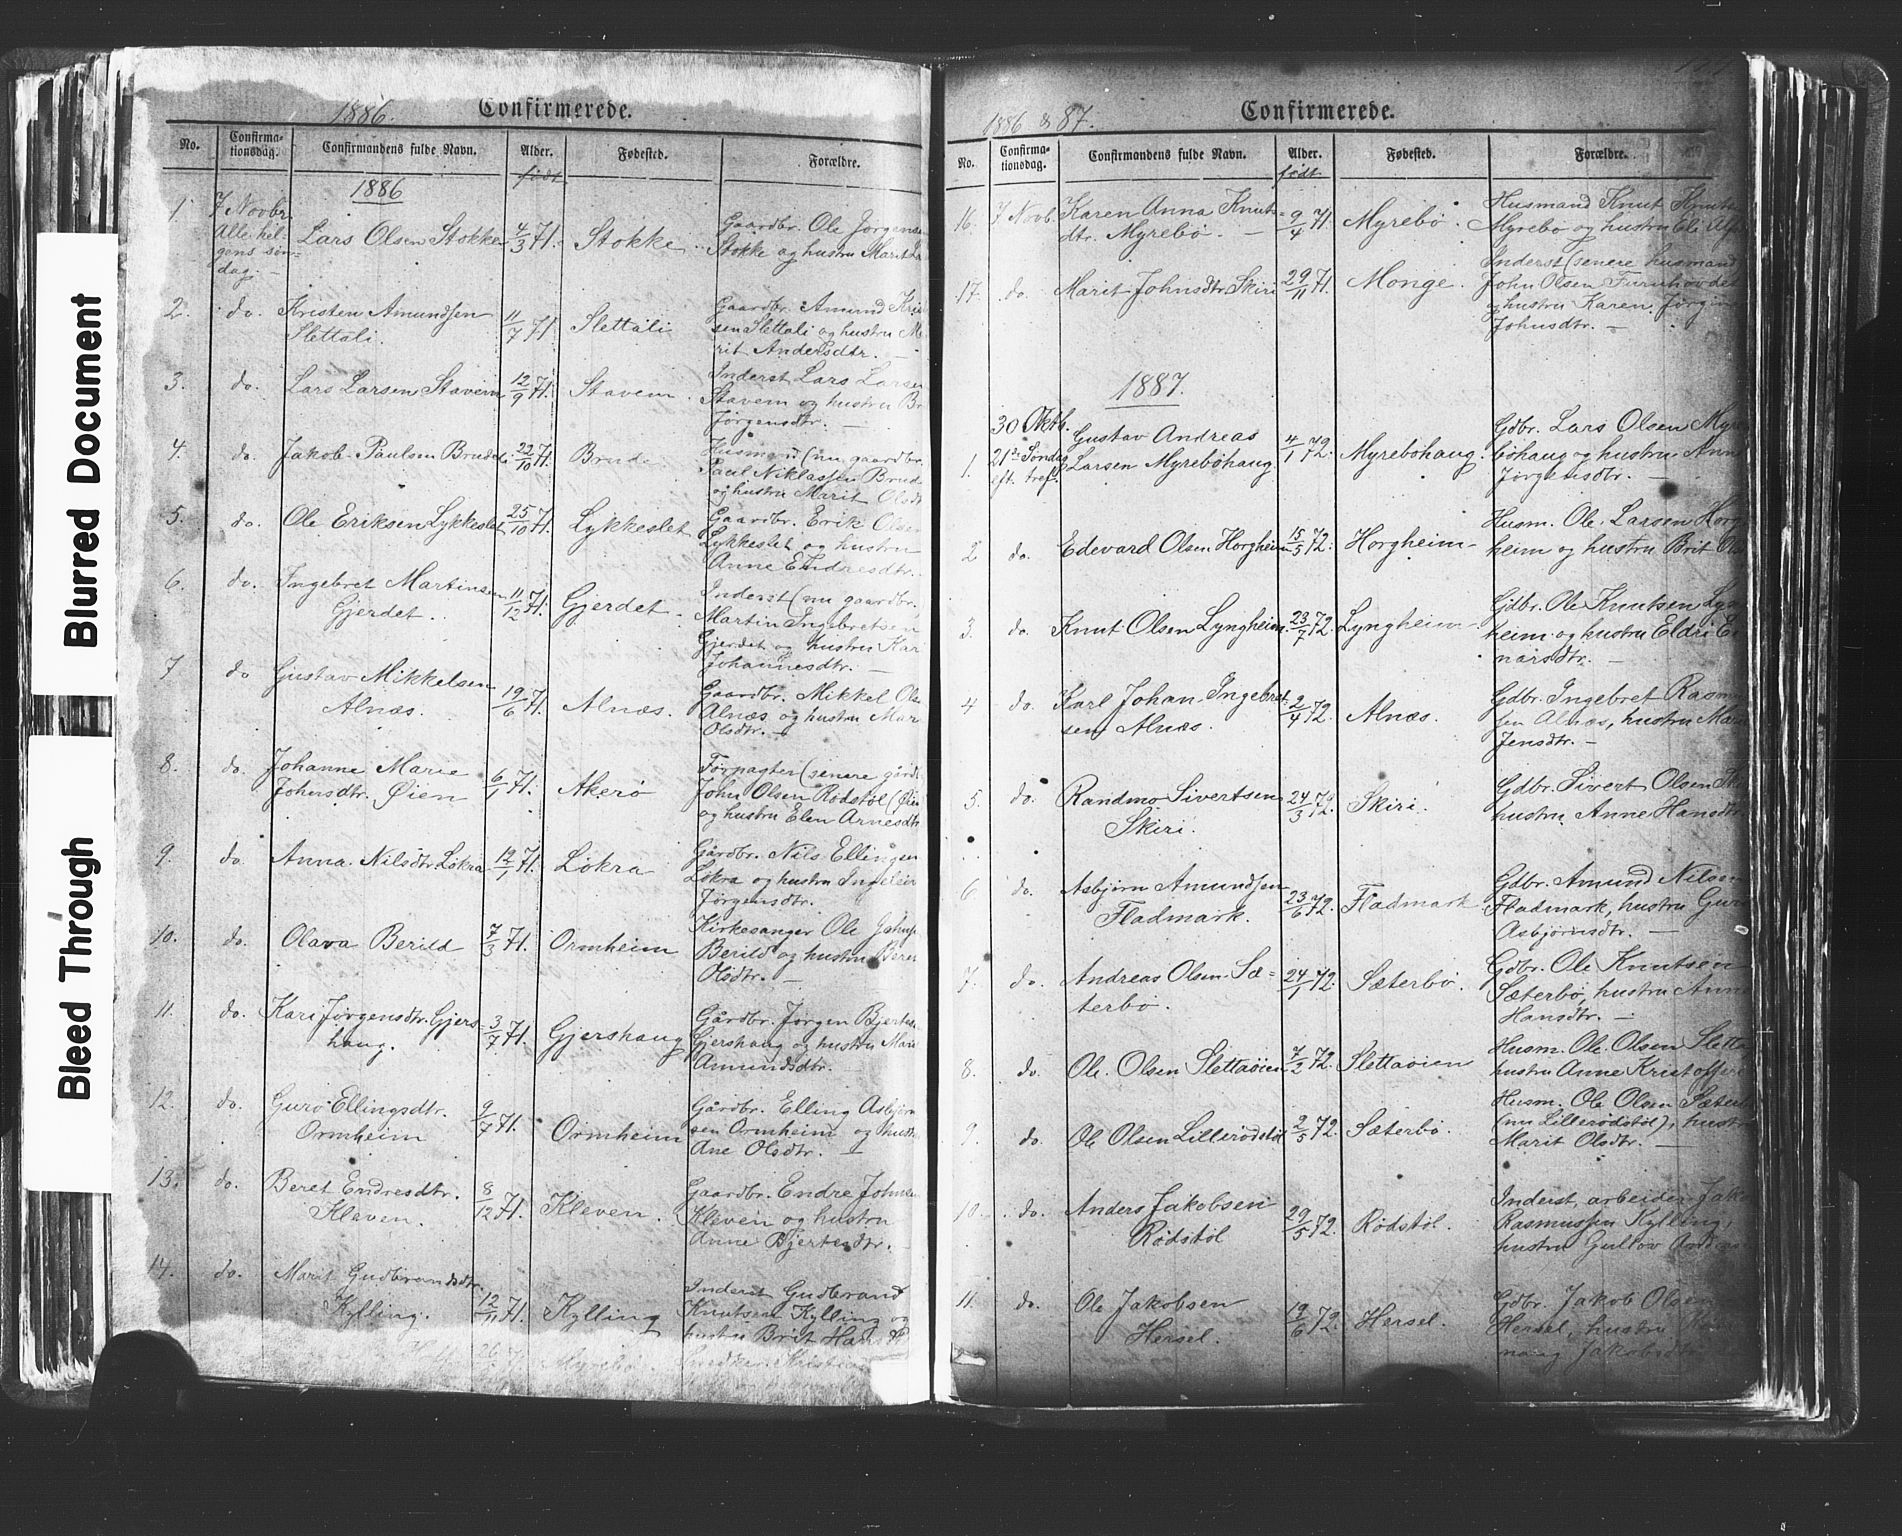 Blurred Document
Bleed Through
1886.
Confirmerede.
No.
Confirma-
tionsdag.
Confirmandens fulde Navn.
Alder.
født.
Fødested.
Forældre.
1886
1.
7 Novbr.
Alle hel-
gens søn-
dag. -
Lars Olsen Stokke
4/3 71.
Stokke
Gaardbr. Ole Jørgensen
Stokke og hustru Marit
2.
do.
Kristen Amundsen
Slettali.
11/7 71
Slettali
Gaardbr. Amund
sen Slettali og hustru
rit Andersdtr. -
3.
do.
Lars Larsen Stavem
12/9 71.
Stavem
Inderst Lars Larsen
Stavem og hustru
Jørgensdtr. -
4.
do.
Jakob Paulsen Brude
22/10 71.
Brude
Husmand (nu gaardbr.
Paul Niklassen Brude
og hustru Marit
5.
do.
Ole Eriksen Lykkeslet
25/10 71.
Lykkeslet
Gaardbr. Erik Olsen
Lykkeslet og hustru
Anne Endresdtr.
6.
do.
Ingebret Martinsen
Gjerdet.
11/12 71.
Gjerdet.
Inderst (nu gaardbr.
Martin Ingebretsen
Gjerdet og hustru
Johannesdtr. -
7
do
Gustav Mikkelsen
Alnæs.
19/6 71.
Alnæs.
Gaardbr. Mikkel
Alnæs og hustru
Olsdtr. -
8.
do.
Johanne Marie
Johnsdtr. Øien
6/1 71.
Akerø
Forpagter (senere
John Olsen Rødstøl (Øien
og hustru Elen Arnesdtr
9.
do.
Anna Nilsdtr. Løkra
12/1 71.
Løkra
Gårdbr. Nils Ellingsen
Løkra og hustru Ingeleiv
Jørgensdtr.
10.
do.
Olava Berild
7/3 71.
Ormheim
Kirkesanger Ole
Berild og hustru
Olsdtr. -
11.
do.
Kari Jørgensdtr. Gjers-
haug.
3/7 71.
Gjershaug
Gårdbr. Jørgen
Gjershaug og hustru
Amundsdtr. -
12.
do.
Guro Ellingsdtr.
Ormheim
9/7 71.
Ormheim
Gårdbr. Elling Asbjørn
sen Ormheim og
Ane Olsdtr. -
13.
do.
Beret Endresdtr.
Kleven.
8/12 71.
Kleven.
Gaardbr. Endre
Kleven og hustru
Anne Bjertesdtr. -
14.
do.
Marit Gudbrandsdtr.
Kylling.
12/11 71.
Kylling
Inderst Gudbrand
Knutsen Kylling og
hustru Brit
26
Myrebø
Kristian
1886 & 87.
Confirmerede.
No.
Confirma-
tionsdag.
Confirmandens fulde Navn.
Alder.
født.
Fødested.
Forældre.
16.
7 Novb.
Karen Anna Knuts-
dtr. Myrebø. -
9/4 71.
Myrebø.
Husmand Knut
Myrebø og hustru Eli
17.
do.
Marit Johnsdtr. Skiri
29/11 71.
Monge.
Inderst (senere husmand
John Olsen Furuhovdet
og hustru Karen
Johnsdtr. -
1887.
1.
30 Oktb.
21de Søndag
eft. tref.
Gustav Andreas
Larsen Myrebøhaug
4/1 72.
Myrebøhaug.
Gdbr. Lars Olsen
bøhaug og hustru
Jørgensdtr. -
2
do.
Edevard Olsen Horgheim
15/5 72.
Horgheim
Husm. Ole Larsen
heim og hustru Brit
3.
do.
Knut Olsen Lyngheim.
23/7 72.
Lyngheim
Gdbr. Ole Knutsen
heim og hustru Eldri
narsdtr. -
4
do.
Karl Johan Ingebret-
sen Alnæs.
2/4 72.
Alnæs.
Gdbr. Ingebret
sen Alnæs, hustru
Jensdtr. -
5.
do.
Randmo Sivertsen
Skiri.
24/3 72.
Skiri.
Gdbr. Sivert Olsen
hustru Anne Hansdtr.
6
do.
Asbjørn Amundsen
Fladmark.
23/6 72.
Fladmark
Gdbr. Amund Nilsen
Fladmark, hustru
Asbjørnsdtr. -
7.
do.
Andreas Olsen Sæ-
terbø.
24/1 72.
Sæterbø.
Gdbr. Ole Knutsen
Sæterbø, hustru Anne
Hansdtr. -
8.
do.
Ole Olsen Slettaøien
7/2 72.
Slettaøien
Husm. Ole Olsen
hustru Anne
9.
do.
Ole Olsen Lillerødstøl
2/5 72.
Sæterbø.
Husm. Ole Olsen
(nu Lillerødstøl),
Marit Olsdtr. -
10.
do.
Anders Jakobsen
Rødstøl
29/5 72.
Rødstøl.
Inderst, arbeider
Rasmussen Kylling,
hustru
11.
do.
Ole Jakobsen
Hersel.
19/6 72.
Hersel.
Gdbr. Jakob Olsen
Hersel, hustru
Jakobsdtr.